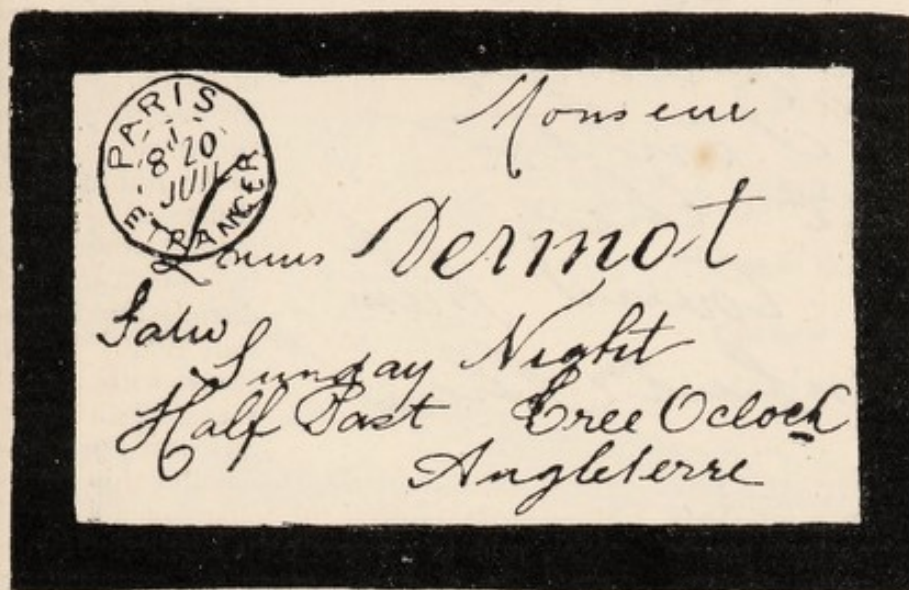 PARIS
1
8 20
JUIL
ETRANGER
Monseur
Dermot
Sunday Night
Half Past Tree Oclock
Angleterre